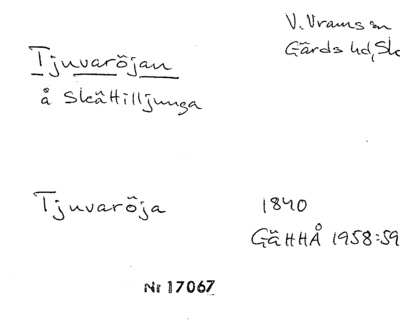 V. Vram sn
Tjuvaröjan
Gärds hd, Sk
å Skättilljunga
Tjuvaröja
1840
GäHHÅ 1958:59
Nr 17067